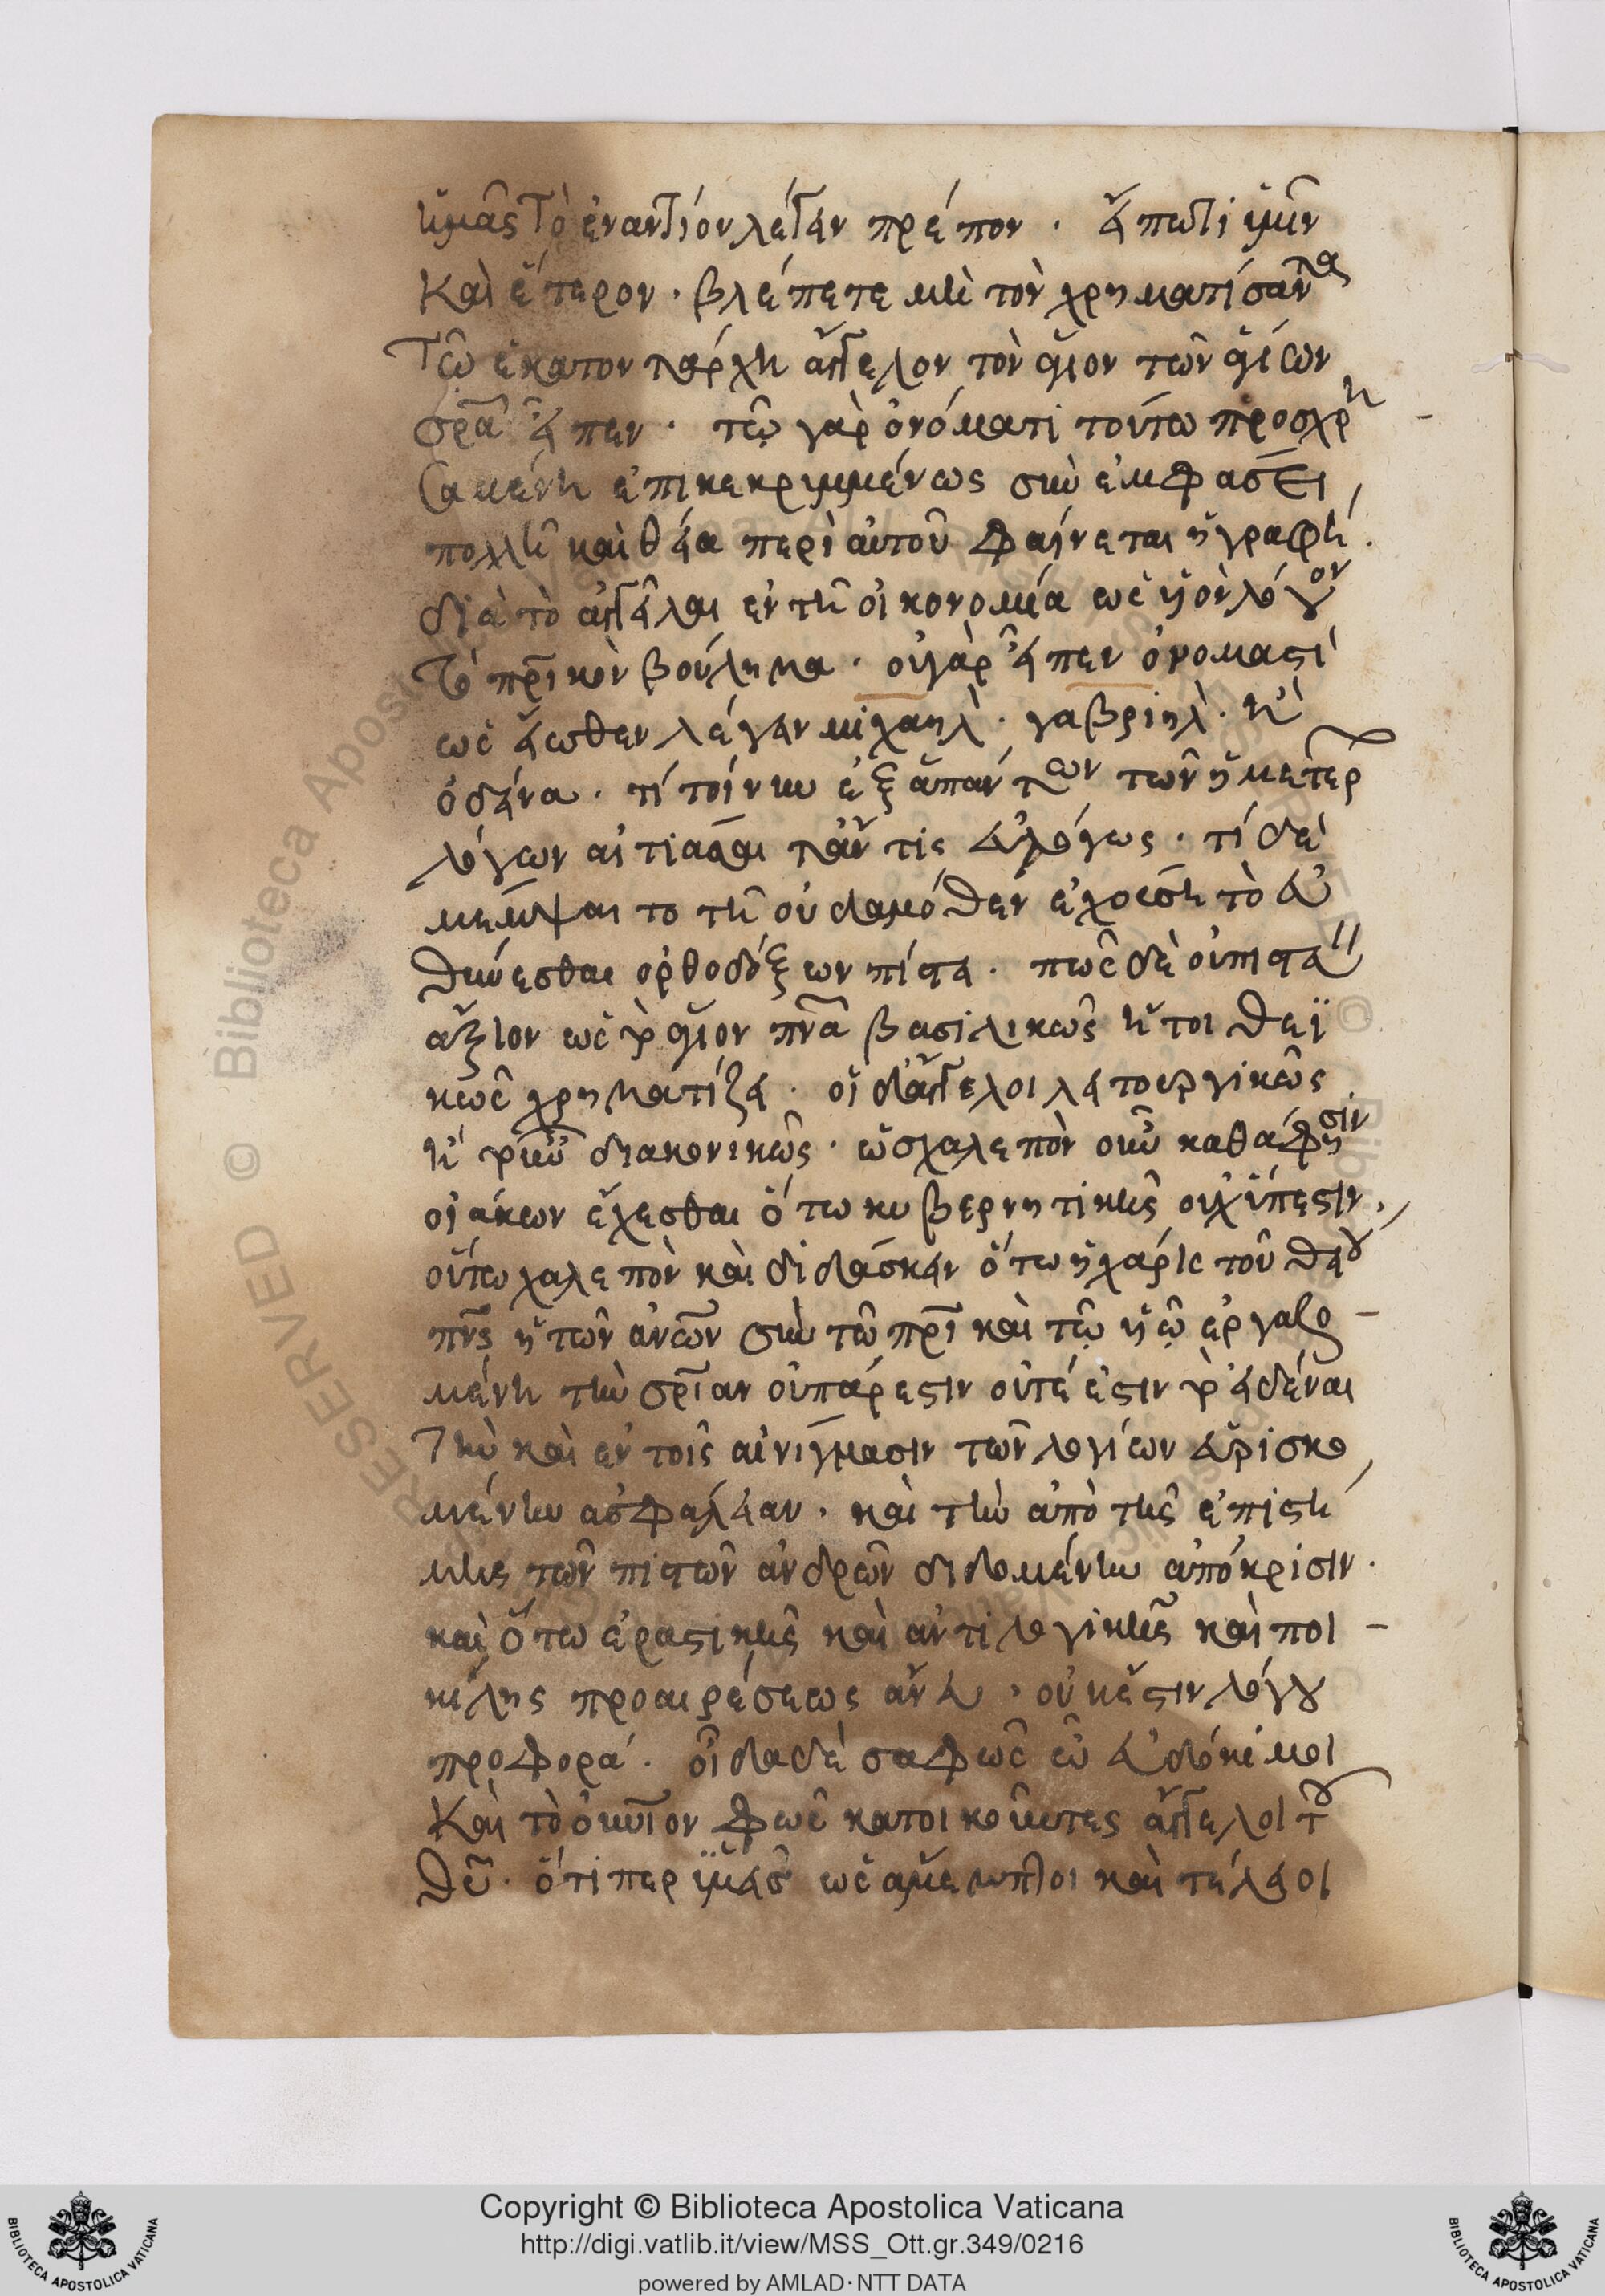 ἡμᾶς τὸ ἐναντίον λέγειν πρέπον · εἴπω τί ὑμῖν
καὶ ἕτερον · βλέπετε μὴ τὸν χρηματίσαντα
τῷ ἑκατοντάρχῃ ἄγγελον τὸν ἅγιον τῶν ἁγίων
σρα εἶπεν · τῷ γὰρ ὀνόματι τούτῳ προσχρη
σαμένη ἐπικεκριμμένως σὺν ἐμφάσει
πολλῇ καὶ θεία περὶ αὐτοῦ φαίνεται ἡ γραφή ·
διὰ τὸ ἀγγεῖλαι ἐν τῇ οἰκονομία ὡς υἱὸν λόγον
τὸ πρικὸν βούλημα · οὐ γὰρ εἶπεν ὀνομαστὶ
ὡς εἴωθεν λέγειν μιχαηλ · γαβριηλ · ἢ
ὁ δεῖνα · τί τοίνυν ἐξ ἁπάντων τῶν ἡμετέρ
λόγων αἰτιᾶσθαι πᾶν τις εὐλόγως · τί δὲ
μέμψαι το τῇ οὐδαμόθεν ἐχούσῃ τὸ εὐ
θύνεσθαι ὀρθοδόξων πίστει · πῶς δὲ οὐ πιστεύ
ἄξιον ὡς τὸ ἅγιον πνα βασιλικῶς ἤτοι θεϊ
κῶς χρηματίζει · οἱ δ' ἄγγελοι λειτουργικῶς
ἢ διακονικῶς · ὡς χαλεπὸν οὖν καθάφησιν
οἰάκων ἔχεσθαι ὅτω κυβερνητικῆς οὐχ ὕπεστιν,
οὕτω χαλεπὸν καὶ διδάσκειν ὅτω ἡ χάρις τοῦ θεοῦ
πνς ἡ τῶν ἀνων σὺν τῷ πρι καὶ τῷ υἱῷ ἐργαζο -
μένη τὴν σριαν οὐ πάρεστιν οὔτε ἐστιν τὸ εἰδέναι
τὴν καὶ ἐν τοῖς αἰνίγμασιν τῶν λογίων εὑρισκο
μένην ἀσφάλειαν · καὶ τὴν ἀπὸ τῆς ἐπιστή
μης τῶν πιστῶν ἀνδρῶν διδομένην ἀπόκρισιν ·
καὶ ὅτω ἐραστικῆς καὶ ἀντιλογικῆς καὶ ποι -
κίλης προαιρέσεως ἂν εὖ · οὐκ ἔστιν λόγου
προφορά · οἶδα δὲ σαφῶς ὦ εὐδόκιμοι
καὶ τὸ οὐνιον φῶς κατοικοῦντες ἄγγελοι τοῦ
θυ · ὅτιπερ ὑμεῖς ὡς ἄμεμπτοι καὶ τέλειοι